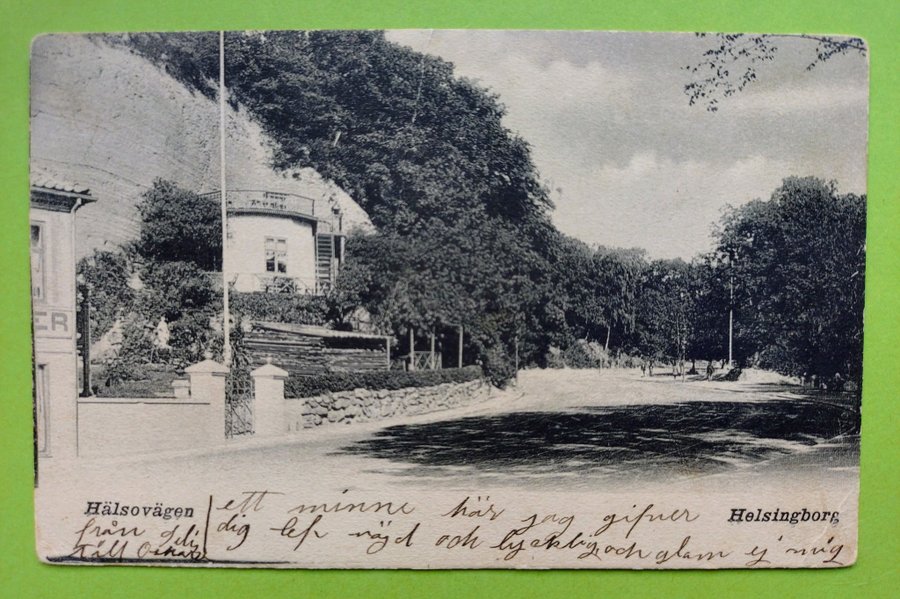 ER
Hälsovägen
Helsingborg
ett minne här jag gifver
dig lef nöjd och lycklig och glöm ej mig
från
Till Oskar